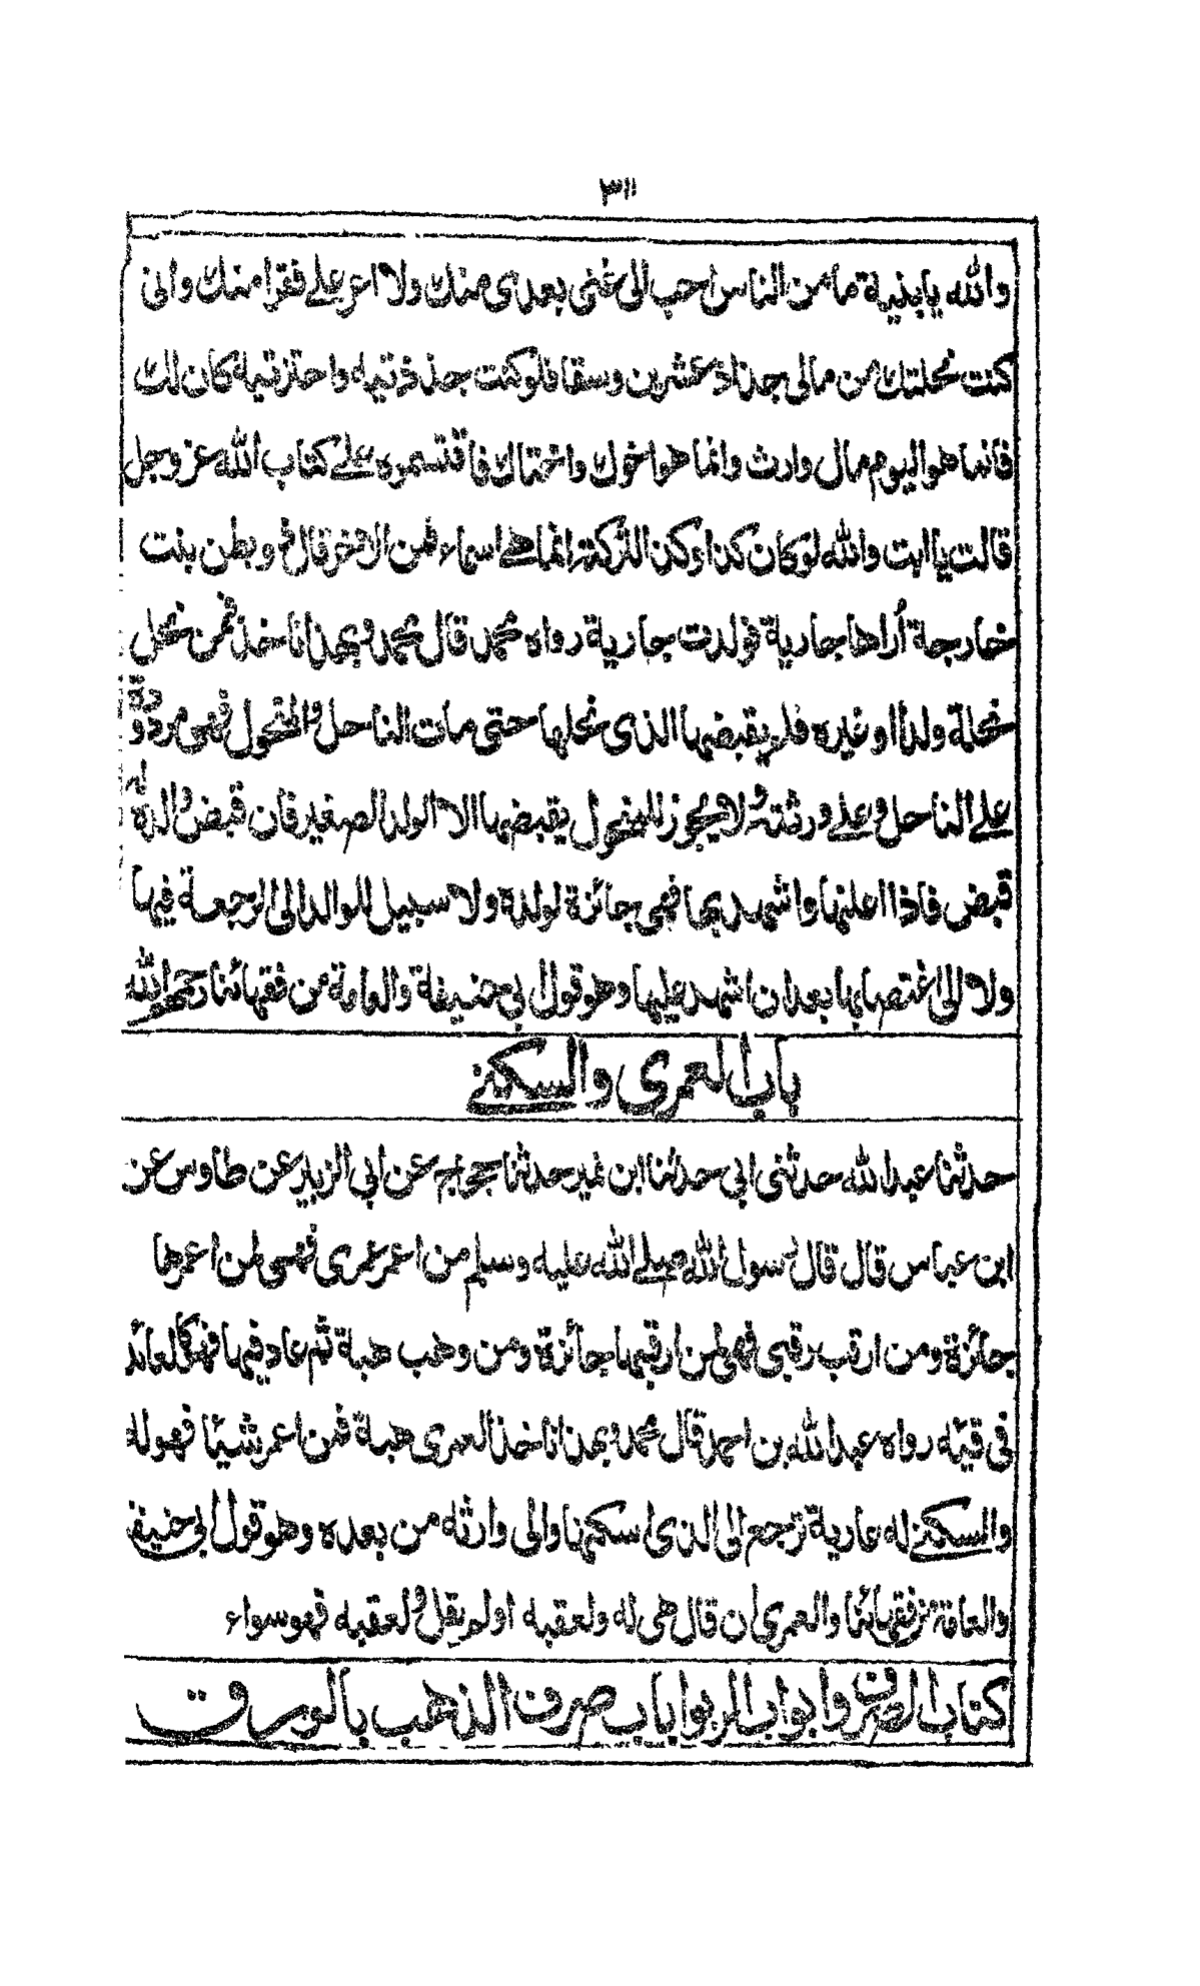 ٣١١
والله يا بنية ما من الناس احب الى غنى بعدى منك ولا اعز على فقرا منك وانى
كنت نحلتك من مالى جذاذ عشرين وسقا فلو كنت جذذتيه واحتزتيه كان لك
فانما هو اليوم مال وارث وانما هو اخوك واختاك فاقتسموه على كتاب الله عز وجل
قالت يا ابت والله لو كان كذا وكذا لتركته انما هى اسماء فمن الاخرى قال ذو بطن بنت
خارجة أراها جارية فولدت جارية رواه محمد قال محمد وبهذا ناخذ فمن نحل
نحلة ولدا او غيره فلم يقبضها الذى نحلها حتى مات الناحل والمنحول فهى مردودة
على الناحل وعلى ورثته ولا يجوز للمنحول يقبضها الا الولد الصغير فان قبض والده له
قبض فاذا اعلنها واشهد بها فهى جائزة لولده ولا سبيل للوالد الى الرجعة فيها
ولا الى اغتصابها بعد ان اشهد عليها وهو قول ابى حنيفة والعامة من فقهائنا رحمهم الله
باب العمرى والسكنى
حدثنا عبد الله حدثنى ابى حدثنا ابن نمير حدثنا حجاج عن ابى الزبير عن طاوس عن
ابن عباس قال قال رسول الله صلى الله عليه وسلم من اعمر عمرى فهى لمن اعمرها
جائزة ومن ارقب رقبى فهى لمن ارقبها جائزة ومن وهب هبة ثم عاد فيها فهو كالعائد
فى قيئه رواه عبد الله بن احمد قال محمد وبهذا ناخذ العمرى هبة فمن اعمر شيئا فهو له
والسكنى له عارية ترجع الى الذى اسكنها والى وارثه من بعده وهو قول ابى حنيفة
والعامة من فقهائنا والعمرى ان قال هى له ولعقبه او لم يقل ولعقبه فهو سواء
كتاب الصرف وابواب الربوا باب صرف الذهب بالورق